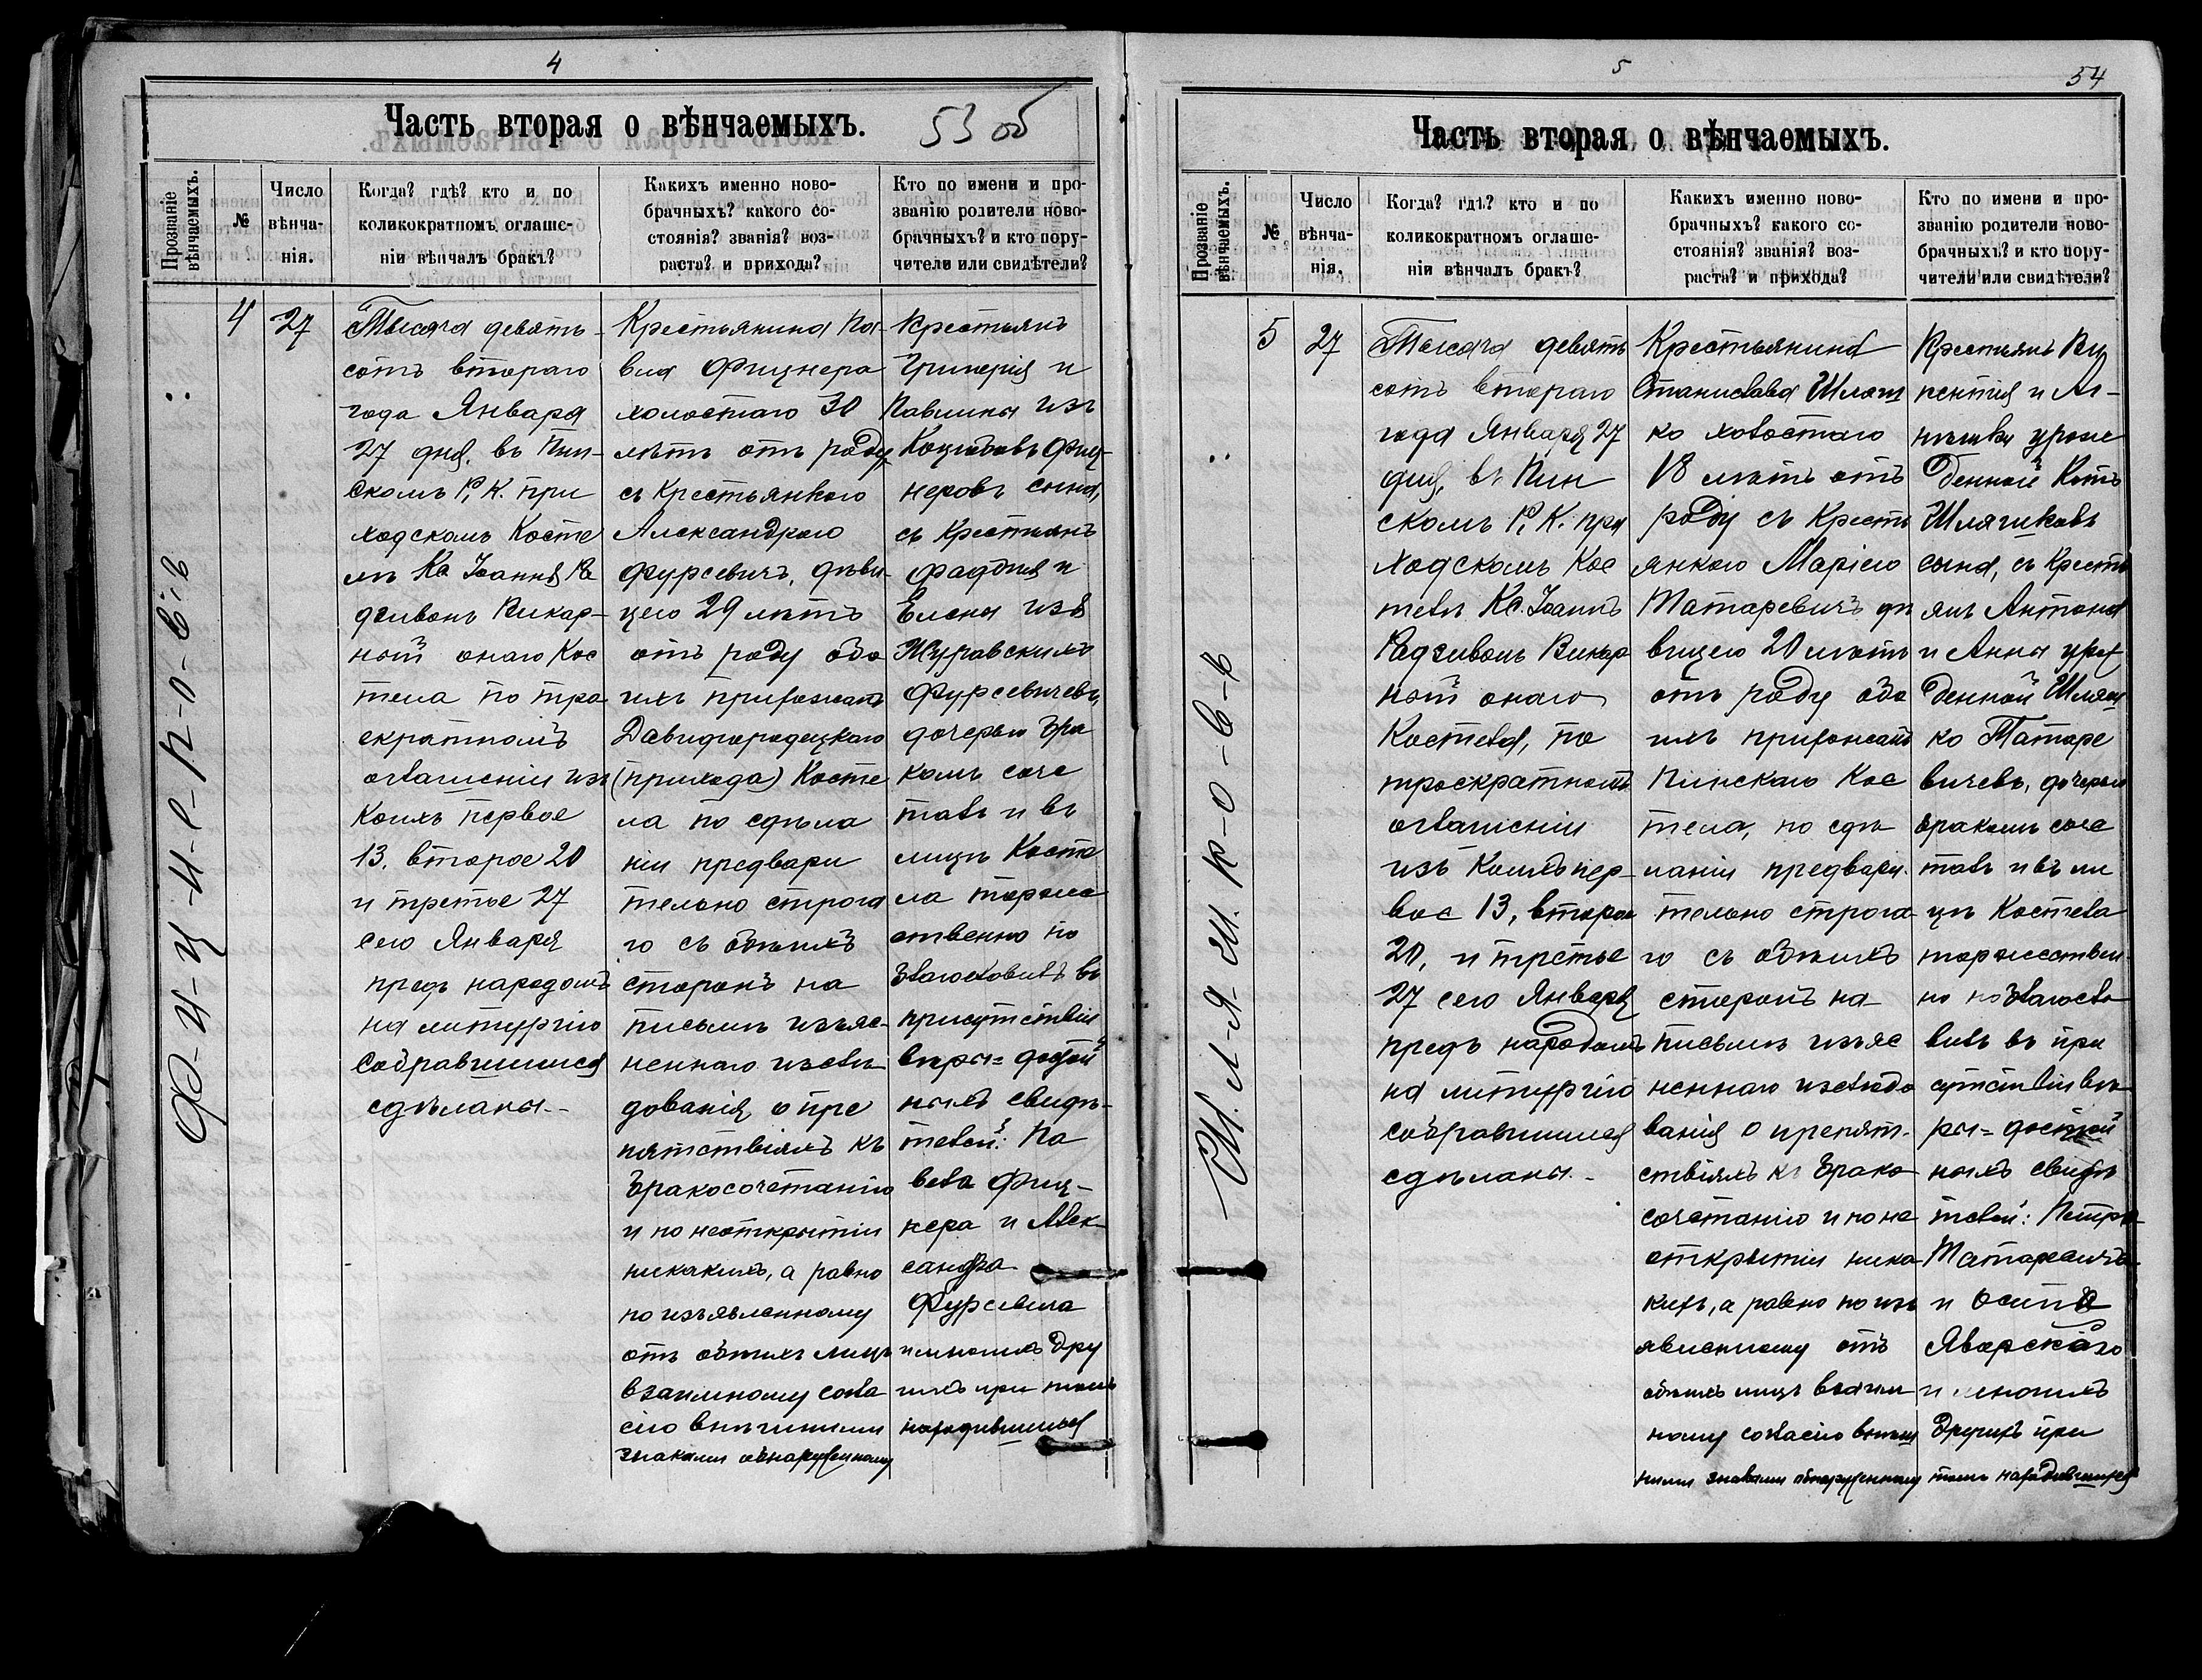 4
Часть вторая о вѣнчаемыхъ.
53 об
Прозваніе вѣнчаемыхъ.
№
Число вѣнча-
нія.
Когда? гдѣ? кто и по
коликократномъ оглаше-
ніи вѣнчалъ бракъ?
Какихъ именно ново-
брачныхъ? какого со-
стоянія? званія? воз-
раста? и прихода?
Кто по имени и про-
званію родители ново-
брачныхъ? и кто пору-
чители или свидѣтели?
4
27
Тысяча девять-
сотъ втораго
года Января
27 дня, въ Пин-
скомъ Р. К. при
ходскомъ Косте
лѣ Кс Іоаннъ Ра
дзивонъ Викар-
ный онаго Кос
тела по тро
екратномъ
оглашеніи изъ
коихъ первое
13, второе 20
и третье 27
сего Января
предъ народомъ
на литургію
собравшимся
сдѣланы.-
Крестьянина Па-
вла Фицнера
холостаго 30
лѣтъ отъ роду
съ Крестьянкою
Александрою
Фурсевичъ, дѣви-
цею 29 лѣтъ
отъ роду обо
ихъ прихожанъ
Давидгородецкаго
(прихода) Косте
ла по сдѣла
ніи предвари
тельно строга
го съ обѣихъ
сторонъ на
письмѣ изъяс-
неннаго изслѣ
дованія о пре
пятствіяхъ къ
бракосочетанію
и по неоткрытіи
никакихъ, а равно
по изъявленному
отъ обѣихъ лицъ
взаимному согла
сію внѣшними
знаками обнаруженному
Крестьянъ
Григорія и
Павлины изъ
Фиц-
неровъ сына,
съ Крестьянъ
Фаддея и
Елены изъ
Журавскихъ
Фурсевичевъ,
дочерью бра
комъ соче
талъ и въ
лицѣ Косте
ла торже
ственно по
благословилъ въ
присутствіи
вѣры=достой
ныхъ свидѣ-
телей: Па
вла Фиц-
нера и Алек-
сандра
Фурсевича
и многихъ дру
гихъ при томъ
находившихся
5
54
Часть вторая о вѣнчаемыхъ.
Прозваніе вѣнчаемыхъ.
№
Число вѣнча-
нія.
Когда? гдѣ? кто и по
коликократномъ оглаше-
ніи вѣнчалъ бракъ?
Какихъ именно ново-
брачныхъ? какого со-
стоянія? званія? воз-
раста? и прихода?
Кто по имени и про-
званію родители ново-
брачныхъ? и кто пору-
чители или свидѣтели?
5
27
Тысяча девять
сотъ втораго
года Января 27
дня, въ Пин
скомъ Р. К. при
ходскомъ Кос
телѣ Кс. Іоаннъ
Радзивонъ Викар
ный онаго
Костела, по
троекратномъ
оглашеніи
изъ коихъ пер-
вое 13, второе
20, и третье
27 сего Января
предъ народомъ
на литургію
собравшимся
сдѣланы.-
Крестьянина
Станислава Шляш
ко холостаго
18 лѣтъ отъ
роду съ Кресть
янкою Маріею
Татаревичъ дѣ
вицею 20 лѣтъ
отъ роду обо
ихъ прихожанъ
Пинскаго Кос
тела, по сдѣ
ланіи предвари-
тельно строга-
го съ обѣихъ
сторонъ на
письмѣ изъяс
неннаго изслѣдо
ванія о препят-
ствіяхъ къ брако
сочетанію и по не
открытіи ника
кихъ, а равно по изъ
явленному отъ
обѣихъ лицъ взаим
ному согласію внѣш
ними знаками обнаруженному
Крестьянъ Ви
кентія и
урож
денной
сына, съ Кресть
янъ Антона
и Анны урож
денной Шляш
ко Татаре
вичевъ, дочерью
бракомъ соче
талъ и въ ли
цѣ Костела
торжествен-
но поблагосло
вилъ въ при
сутствіи вѣ
ры=достой
ныхъ свидѣ
телей: Петра
Татаревича
и Осипа
Яворскаго
и многихъ
другихъ при
томъ находившихся